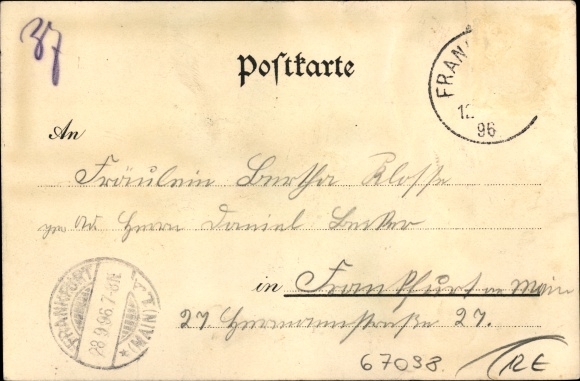 37
Postkarte
FRAN
12
96
An
Fräulein Bertha Klosse
per Ad. Herrn Daniel Becker
in Frankfurt a Main
27 Hermannstraße 27.
FRANKFURT (MAIN) 1.
28.9.96.7-8N.
67098.
RE